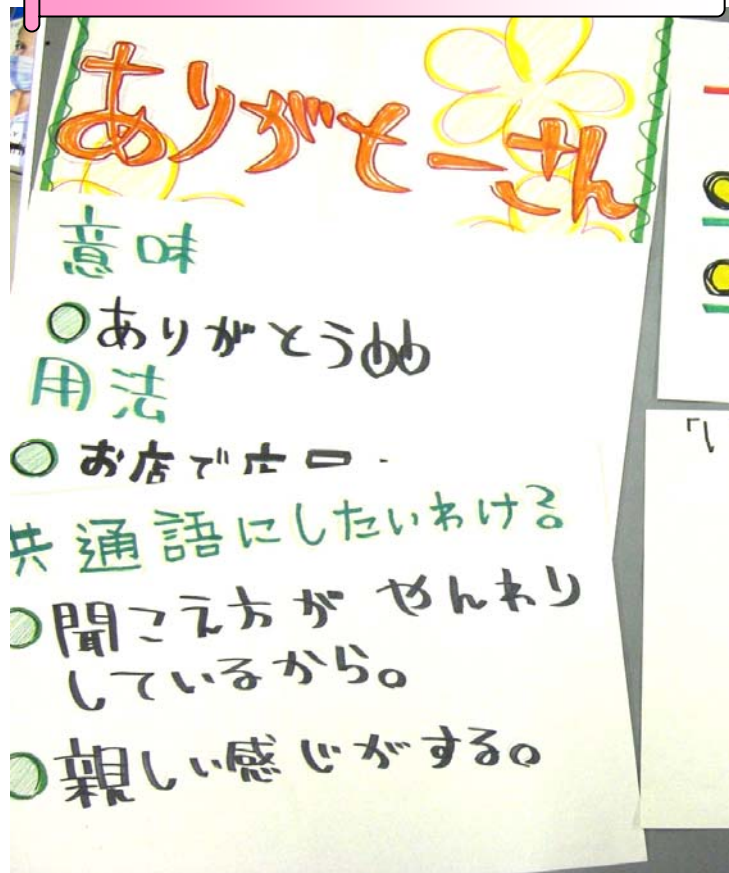 ありがとーさん
意味
ありがとう
用法
お店で店
共通語にしたいわけ
聞こえ方が やんわり
しているから。
親しい感じがする。